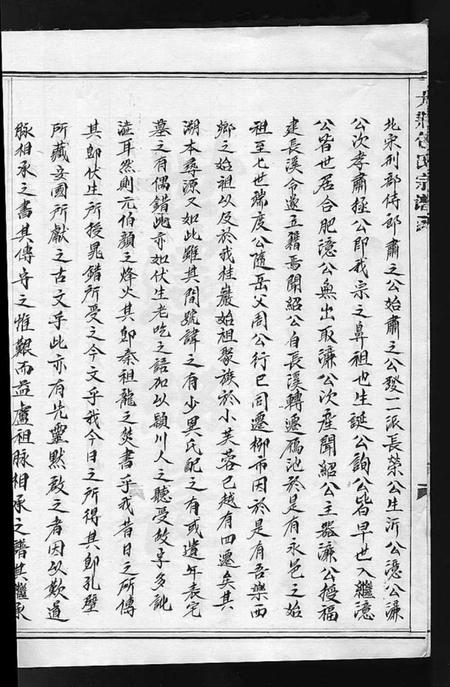 北宋刑部侍郎肅之公始肅之公發二派長榮公生沂公澄公濂
公次孝肅拯公即我宗之鼻祖也生誕公詢公皆早世入繼澄
公皆世居合肥澄公無出取濂公次產聞紹公主器濂公授福
建長溪令遂立籍焉聞紹公自長溪轉遷雁池於是有永邑之始
祖至七世瑞度公隨岳父周公行巳同遷柳市因於是有吾樂西
鄉之始祖以及於我桂巖始祖聚族於小芙蓉已越有四遷矣其
溯本尋源又如此雖其間號諱之有少異氏配之有或遺年表宅
墓之有偶錯此亦如伏生老吃之語加以穎川人之聽受故字多訛
謬耳然則元伯顏之烽火其即秦祖龍之焚書乎我昔日之所傳
其即伏生所授晁錯所受之今文乎我今日之所得其即孔壁
所藏安國所獻之古文乎此亦有先靈默啟之者因以歎道
脉相承之書其傳守之惟艱而益慮祖脉相承之譜其繼承
包氏宗譜